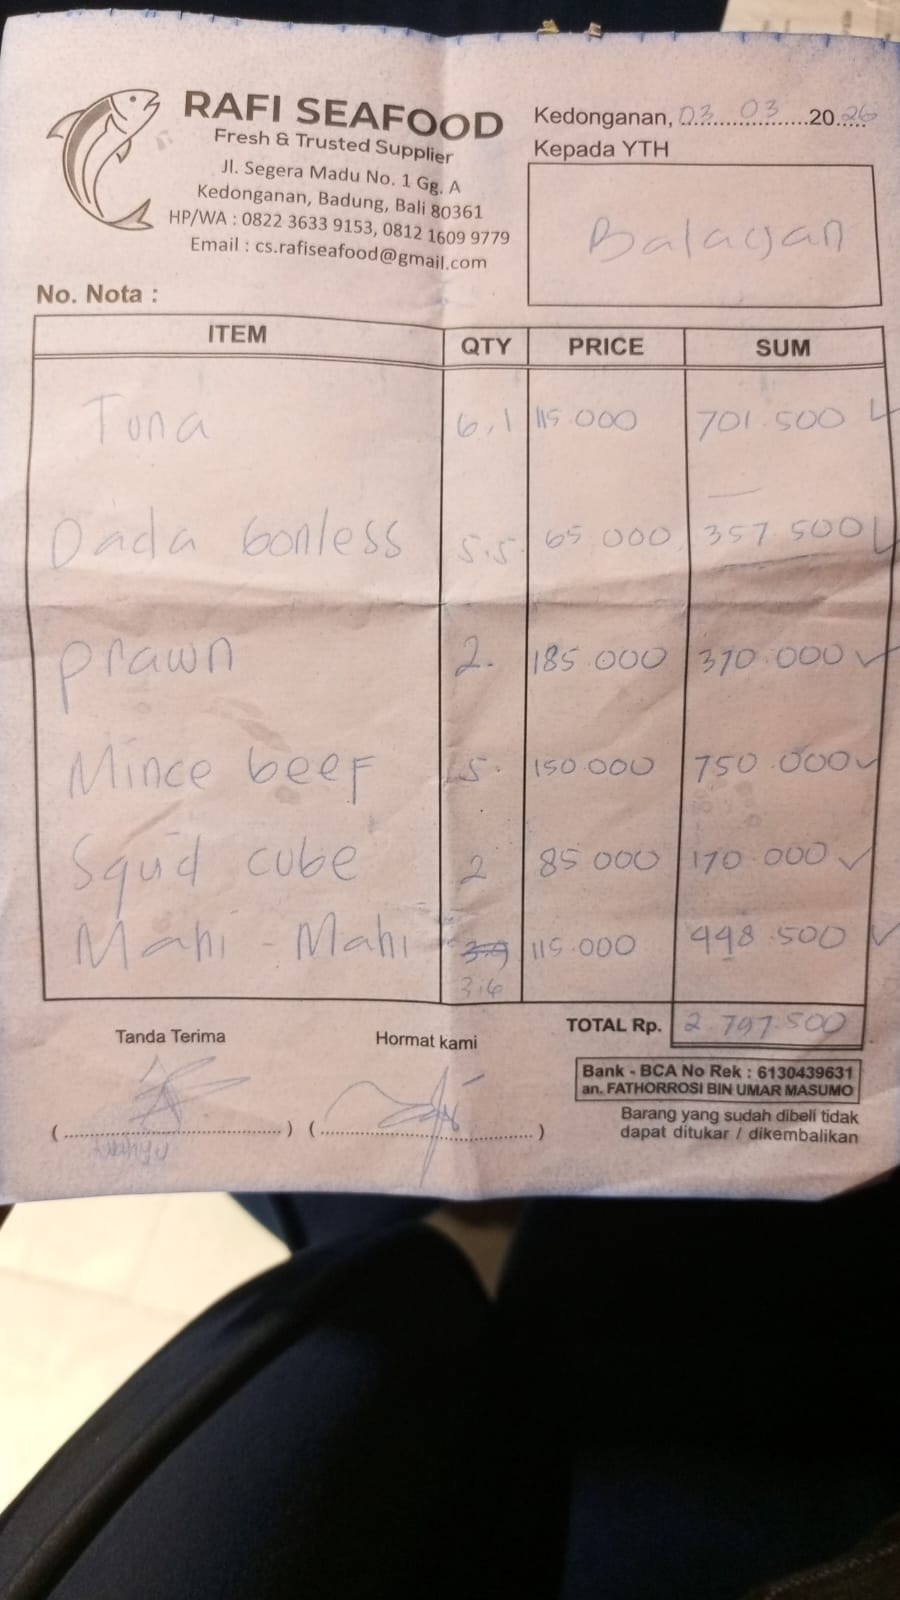 RAFI SEAFOOD
Fresh & Trusted Supplier
Jl. Segera Madu No. 1 Gg. A
Kedonganan, Badung, Bali 80361
HP/WA : 0822 3633 9153, 0812 1609 9779
Email : cs.rafiseafood@gmail.com
Kedonganan, 03 03 2026
Kepada YTH
Balagan
No. Nota :
ITEM QTY PRICE SUM
Tuna 6,1 115.000 701.500
Dada bonless 5.5 65.000 357.500
Prawn 2. 185.000 370.000
Mince beef 5. 150.000 750.000
Squid cube 2 85 000 170.000
Mahi - Mahi 3.9 115.000 448.500
3.6
TOTAL Rp. 2.797.500
Tanda Terima
Hormat kami
Bank - BCA No Rek : 6130439631
an. FATHORROSI BIN UMAR MASUMO
Barang yang sudah dibeli tidak
dapat ditukar / dikembalikan